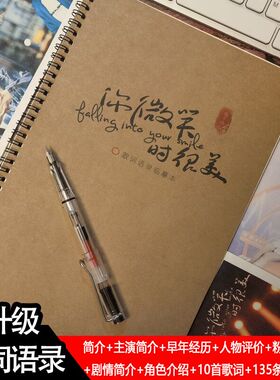 你微笑
falling into your smile
时很美
歌词语录临摹本
你微笑
时很美
升级
词语录
简介+主演简介+早年经历+人物评价+粉
+剧情简介+角色介绍+10首歌词+135条